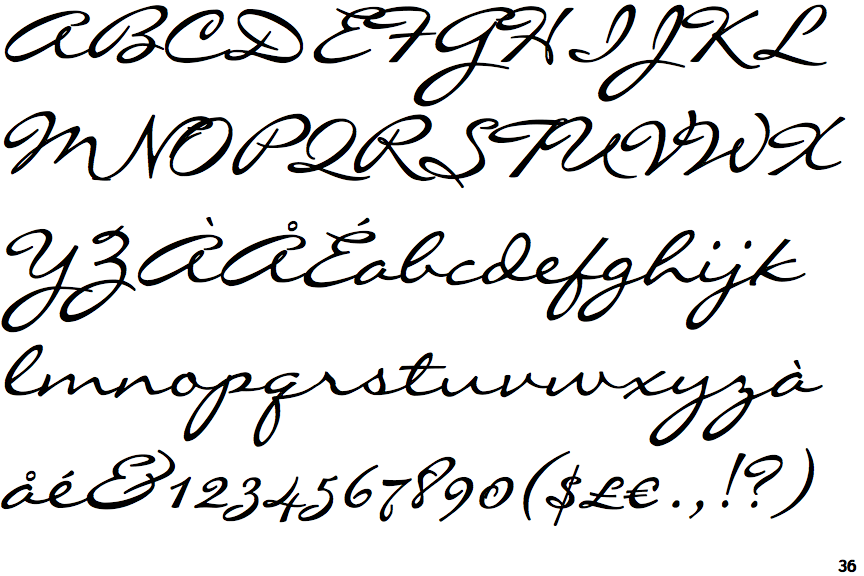 ABCDEFGHIJKL
MNOPQRSTUVWX
YZÀÅÉabcdefghijk
lmnopqrstuvwxyzà
åé&1234567890($£€.,!?)
36